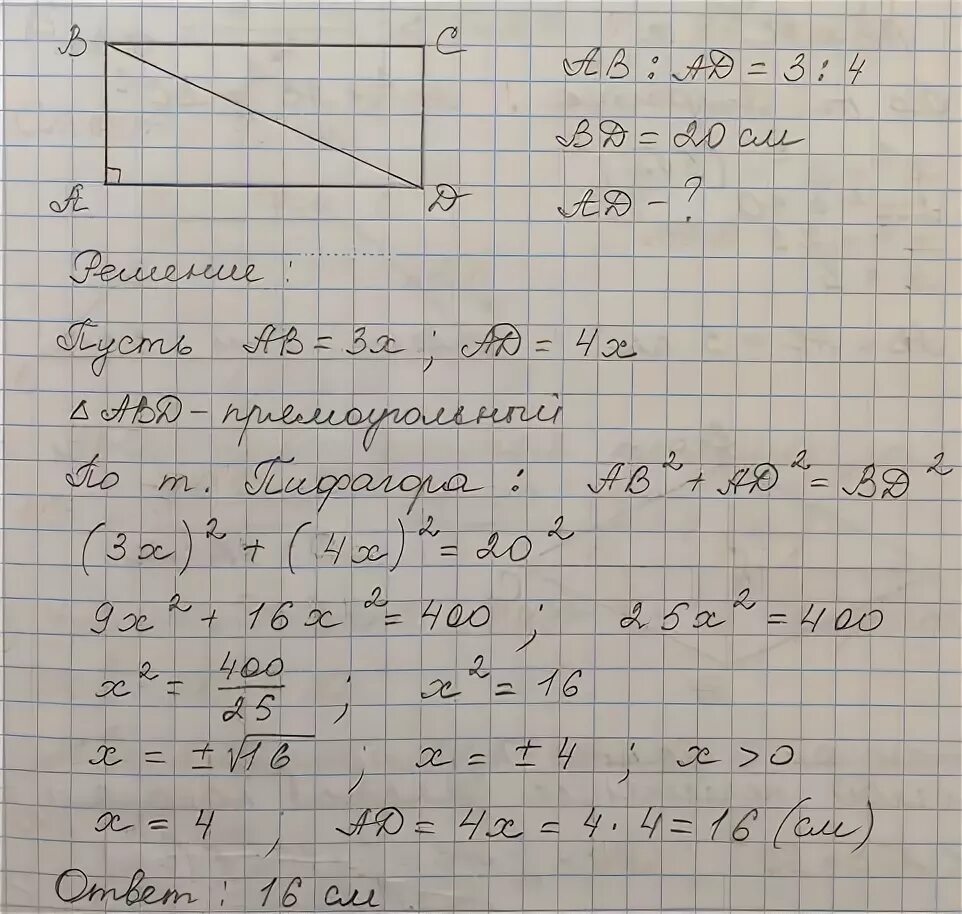 B C
A D
AB : AD = 3 : 4
BD = 20 см
AD - ?
Решение :
Пусть AB = 3x ; AD = 4x
△ ABD - прямоугольный
По т. Пифагора : AB² + AD² = BD²
(3x)² + (4x)² = 20²
9x² + 16x² = 400 ; 25x² = 400
x² = 400/25 ; x² = 16
x = ±√16 ; x = ± 4 ; x > 0
x = 4 ; AD = 4x = 4 · 4 = 16 (см)
Ответ : 16 см